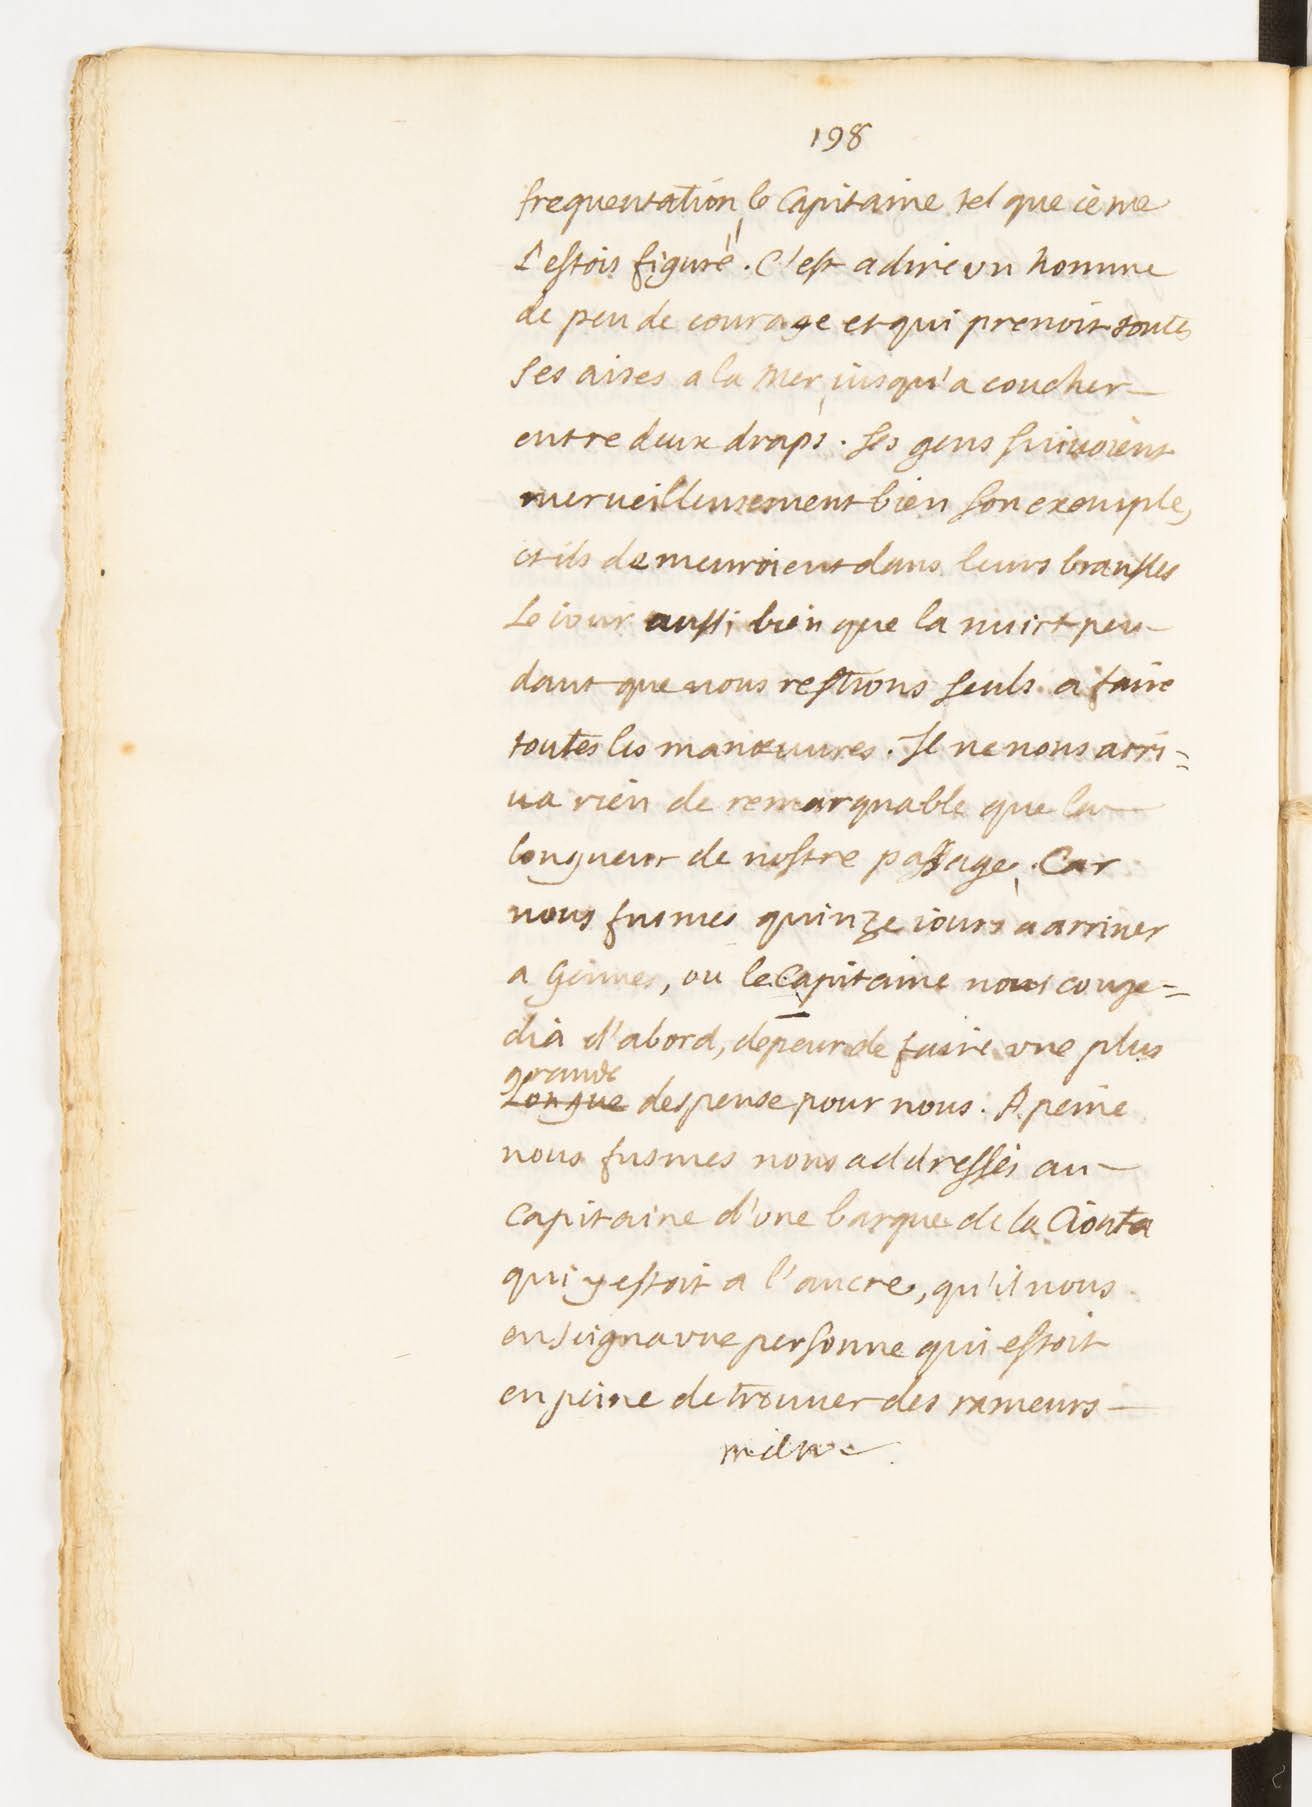 198
frequentation, le Capitaine tel que ie me
L'estois figuré. C'est a dire vn homme
de peu de courage et qui prenoit toutes
ses aises a la Mer, iusqu'a coucher
entre deux draps. Ses gens suiuoient
merueilleusement bien son exemple,
et ils demeuroient dans leurs bransles
Le iour aussi bien que la nuict pen-
dant que nous restions seuls a faire
toutes les manœuures. Il ne nous arri=
ua rien de remarquable que la
longueur de nostre passage. Car
nous fusmes quinze iours a arriuer
a Gennes, ou le Capitaine nous conge=
dia d'abord, de peur de faire vne plus
grande
Longue despense pour nous. A peine
nous fusmes nous addressés au
capitaine d'vne barque de la Ciouta
qui y estoit a l'ancre, qu'il nous
enseigna vne personne qui estoit
en peine de trouuer des rameurs